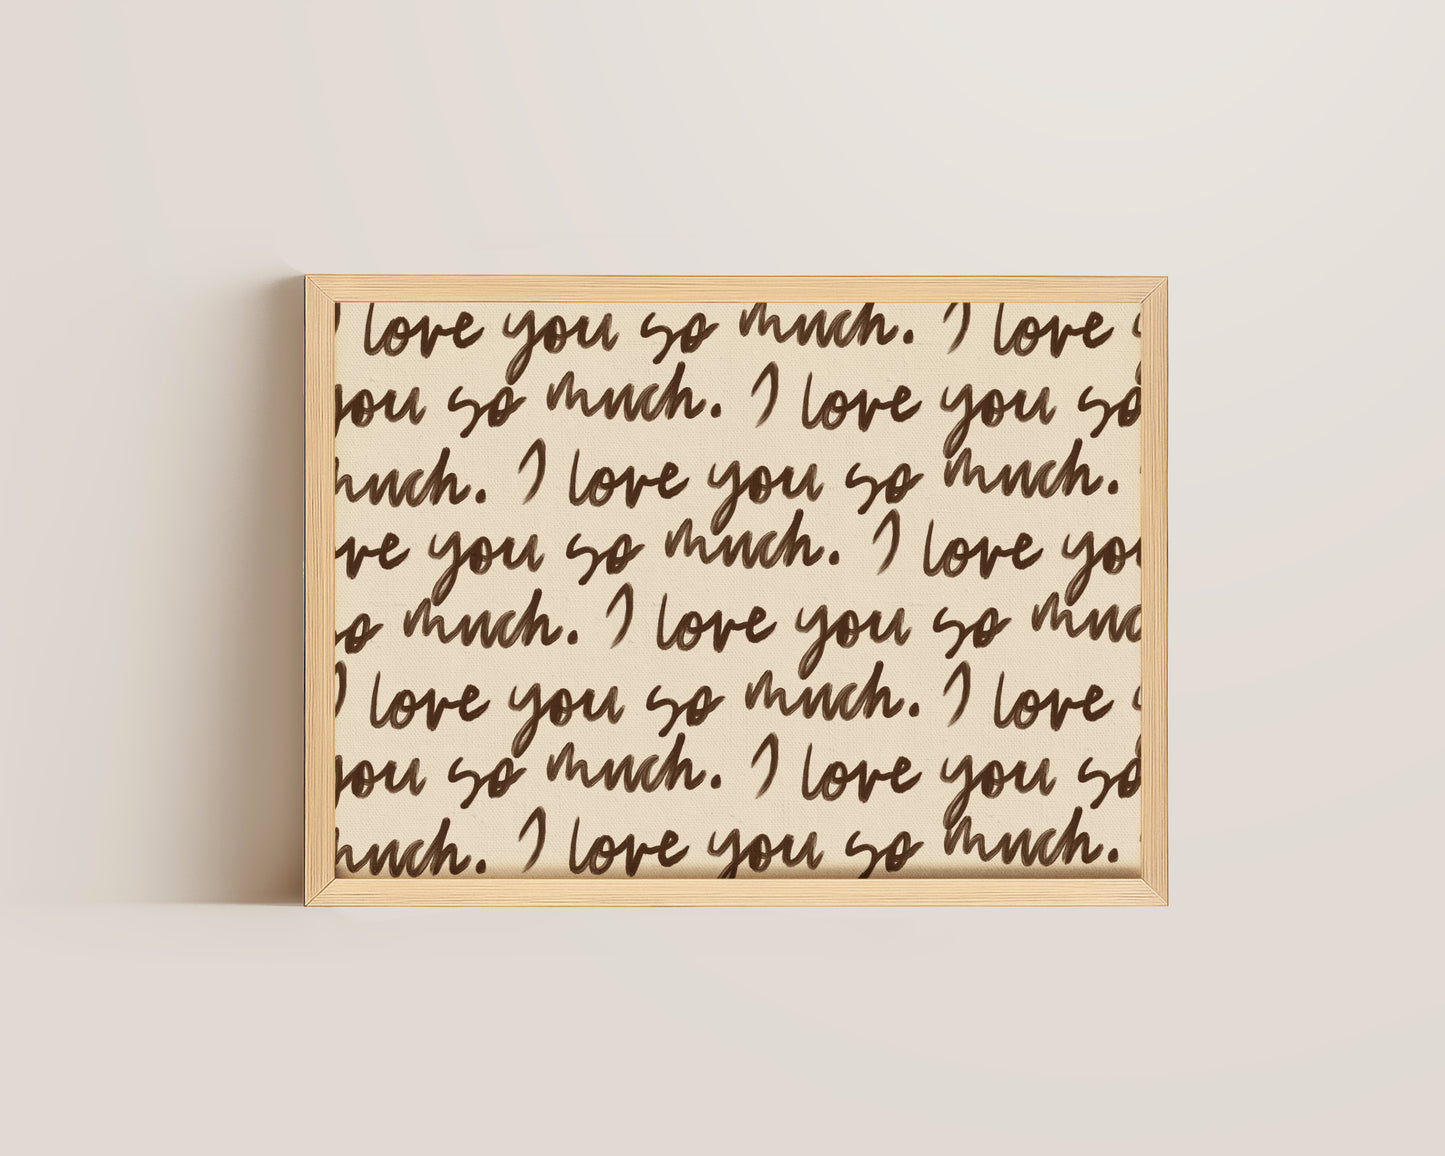 I love you so much. I love y
you so much. I love you so
much. I love you so much.
ove you so much. I love you
so much. I love you so much
I love you so much. I love y
you so much. I love you so
much. I love you so much.